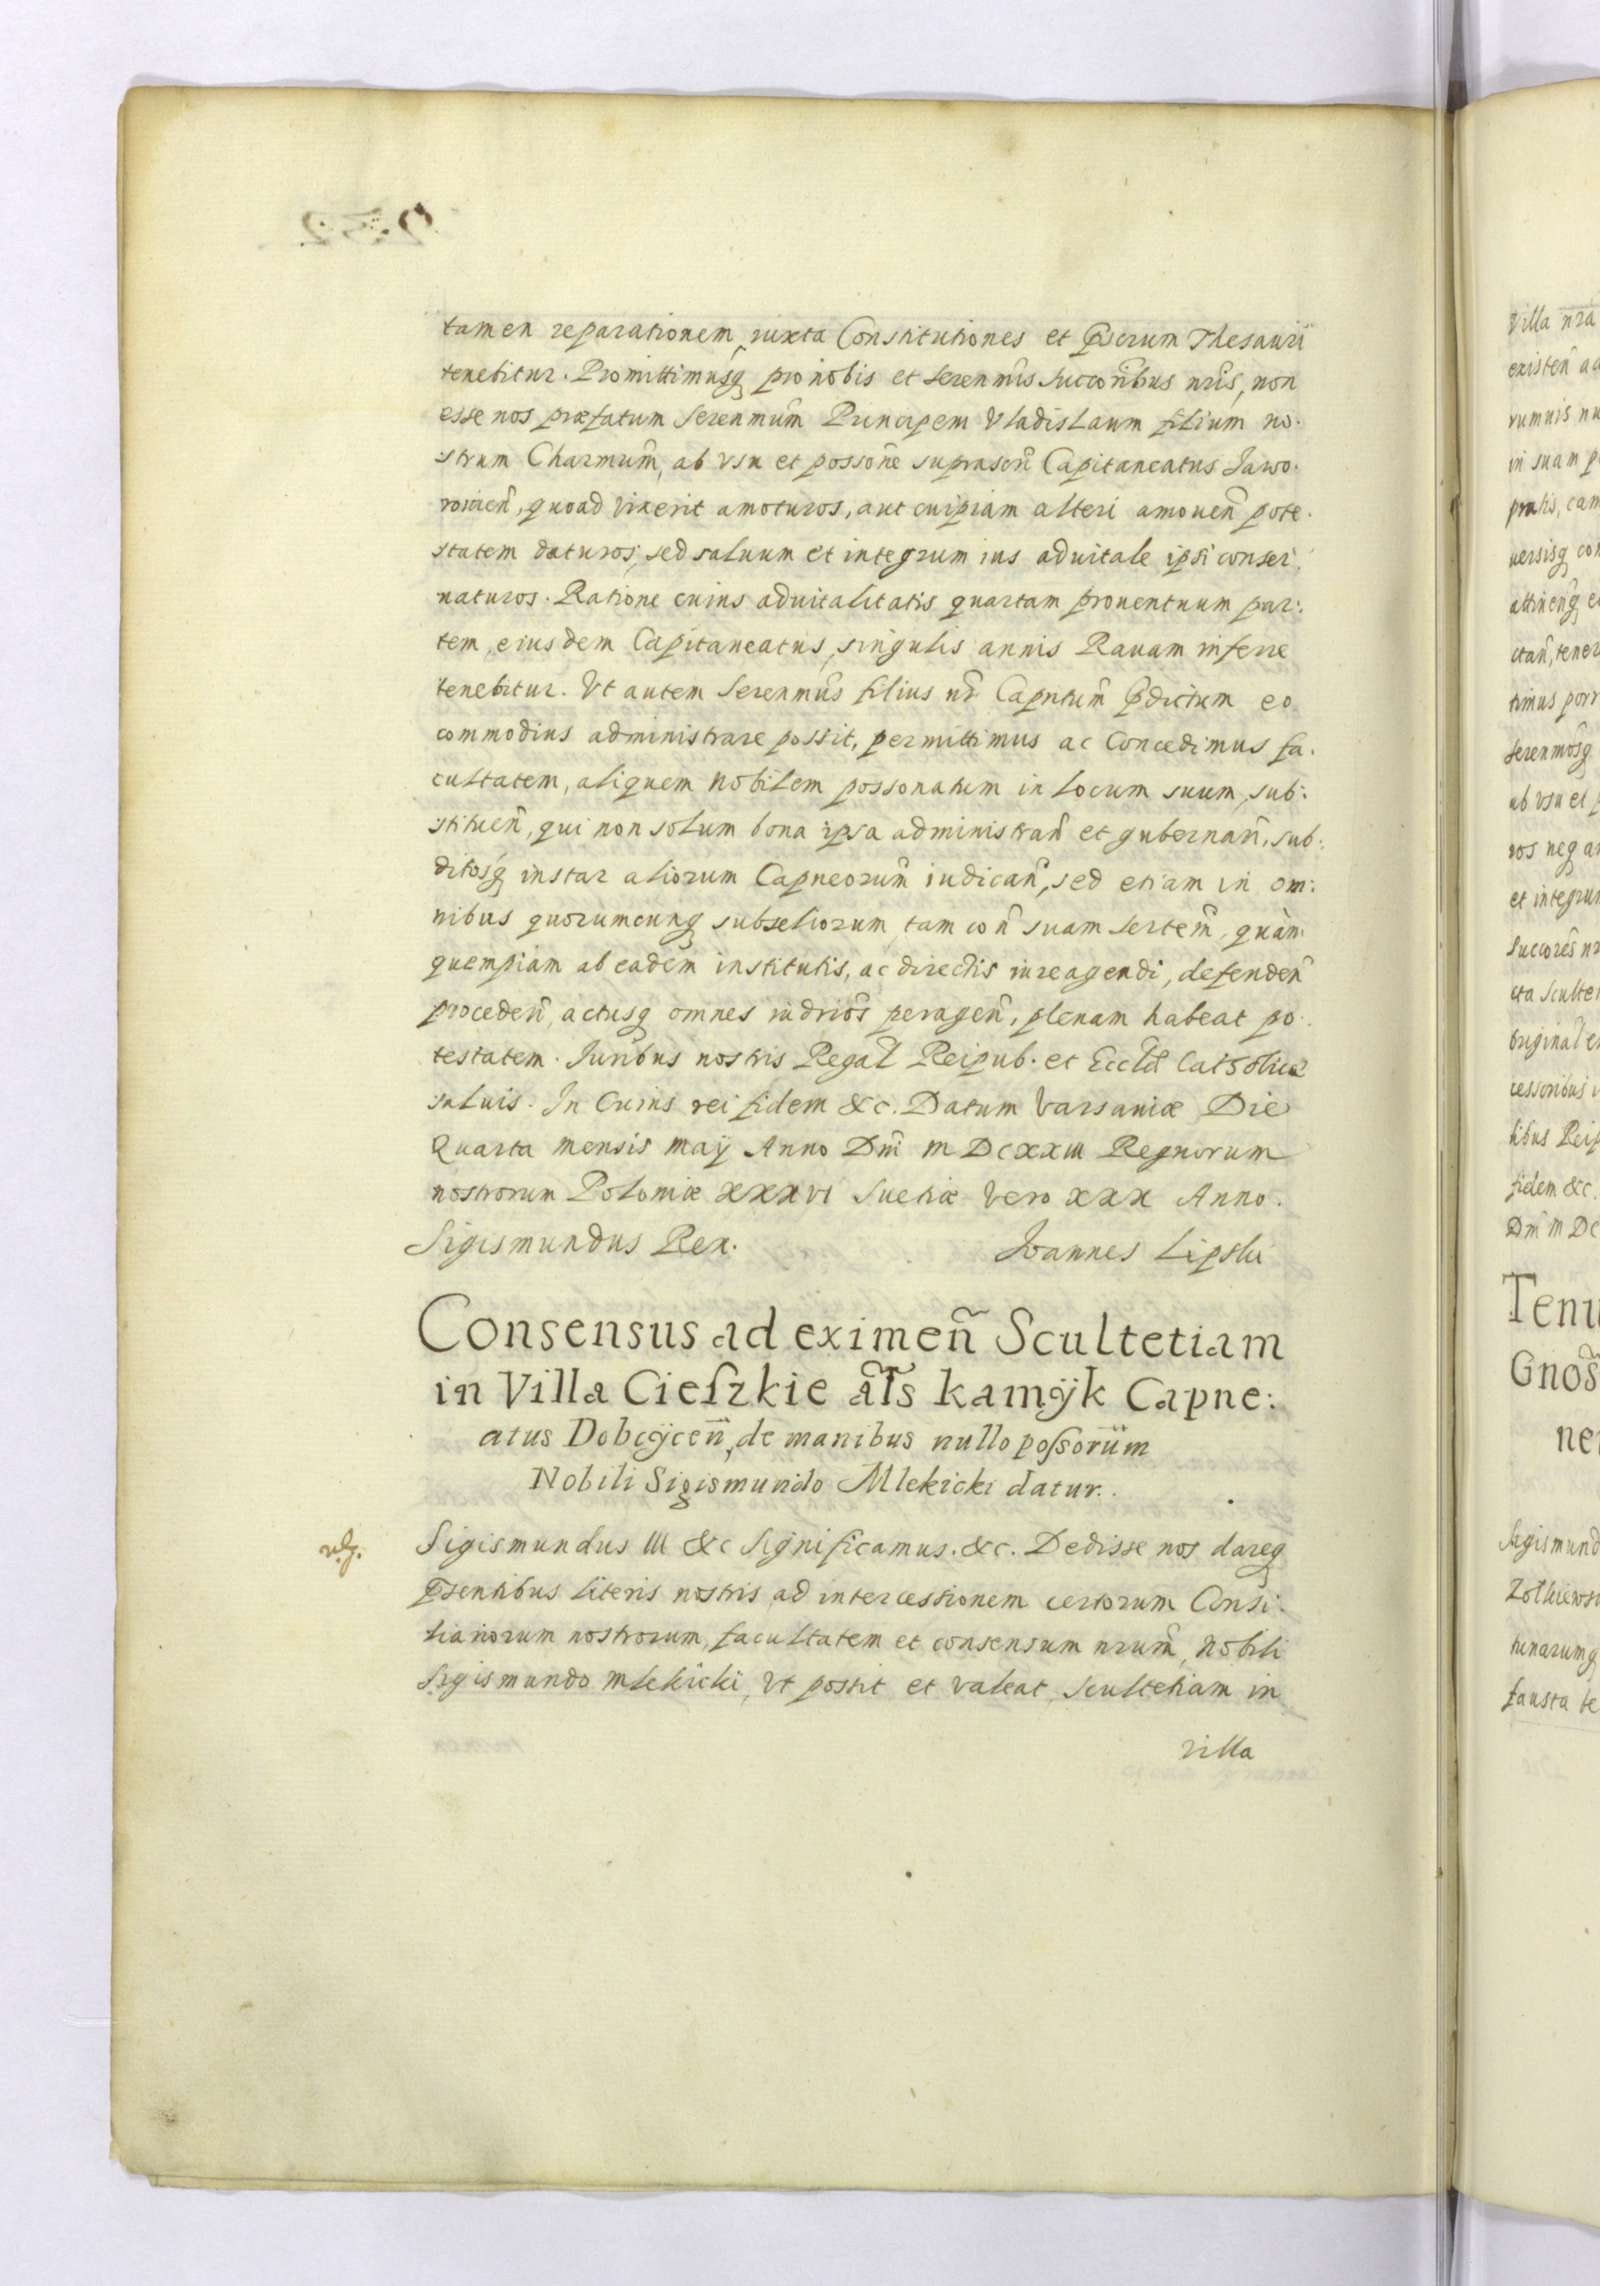 tamen reparationem, iuxta Constitutiones et p̃scrum Thesauri
tenebitur. Promittimusq̃ pro nobis et serenm̃is succorib̃us nr̃is, non
esse nos præfatum Serenmũm Principem Vladislaum filium no:
strum Charmũm, ab vsu et possoñe suprascrĩ Capitaneatus Jawo:
rowieñ, quoad vixerit amoturos, aut cuipiam alteri amoueñ pote:
statem daturos, sed saluum et integrum ius aduitale ipsi conser:
uaturos. Ratione cuius aduitalitatis quartam prouentuum par:
tem, eiusdem Capitaneatus, singulis annis Rauam inferre
tenebitur. Vt autem Serenmũs filius nr̃ Capntum̃ p̃dictum eo
commodius administrare possit, permittimus ac Concedimus fa:
cultatem, aliquem Nobilem possonatum in locum suum, sub:
stitueñ, qui non solum bona ipsa administrañ et gubernañ, sub:
ditosq̃ instar aliorum Capneorum̃ iudicañ, sed etiam in om:
nibus quorumcunq̃ subseliorum, tam coñ suam sertem̃, quàm
quempiam ab eadem institutis, ac directis iure agendi, defendeñ
procedeñ, actusq̃ omnes iudrios̃ perageñ, plenam habeat po:
testatem. Juribus nostris Regal̃ Reipub. et Eccl̃æ Catholicæ
saluis. In Cuius rei fidem &c. Datum Varsauiæ Die
Quarta mensis maij Anno Dm̃i M DCXXIII Regnorum
nostrorum Poloniæ XXXVI Suetiæ Vero XXX Anno.
Sigismundus Rex. Joannes Lipski
Consensus ad eximeñ Scultetiam
in Villa Cieſzkie al̃s kamÿk Capne:
atus Dobcÿceñ, de manibus nullo poſsorum
Nobili Sigismundo Mlekicki datur.
Sigismundus III &c Significamus. &c. Dedisse nos dareq̃
p̃sentibus literis nostris, ad intercessionem certorum Consi:
liariorum nostrorum, facultatem et consensum nrum̃, Nobili
Sigismundo Mlekicki, Vt possit et valeat, Scultetiam in
villa
villa nr̃a
rumuis nu
in suam p
timus porr
ab vsu et p
et integrum
cessoribus
fidem &c.
Dm̃ M DC
Tenu
Gnos̃
ne
Sigismund
fausta